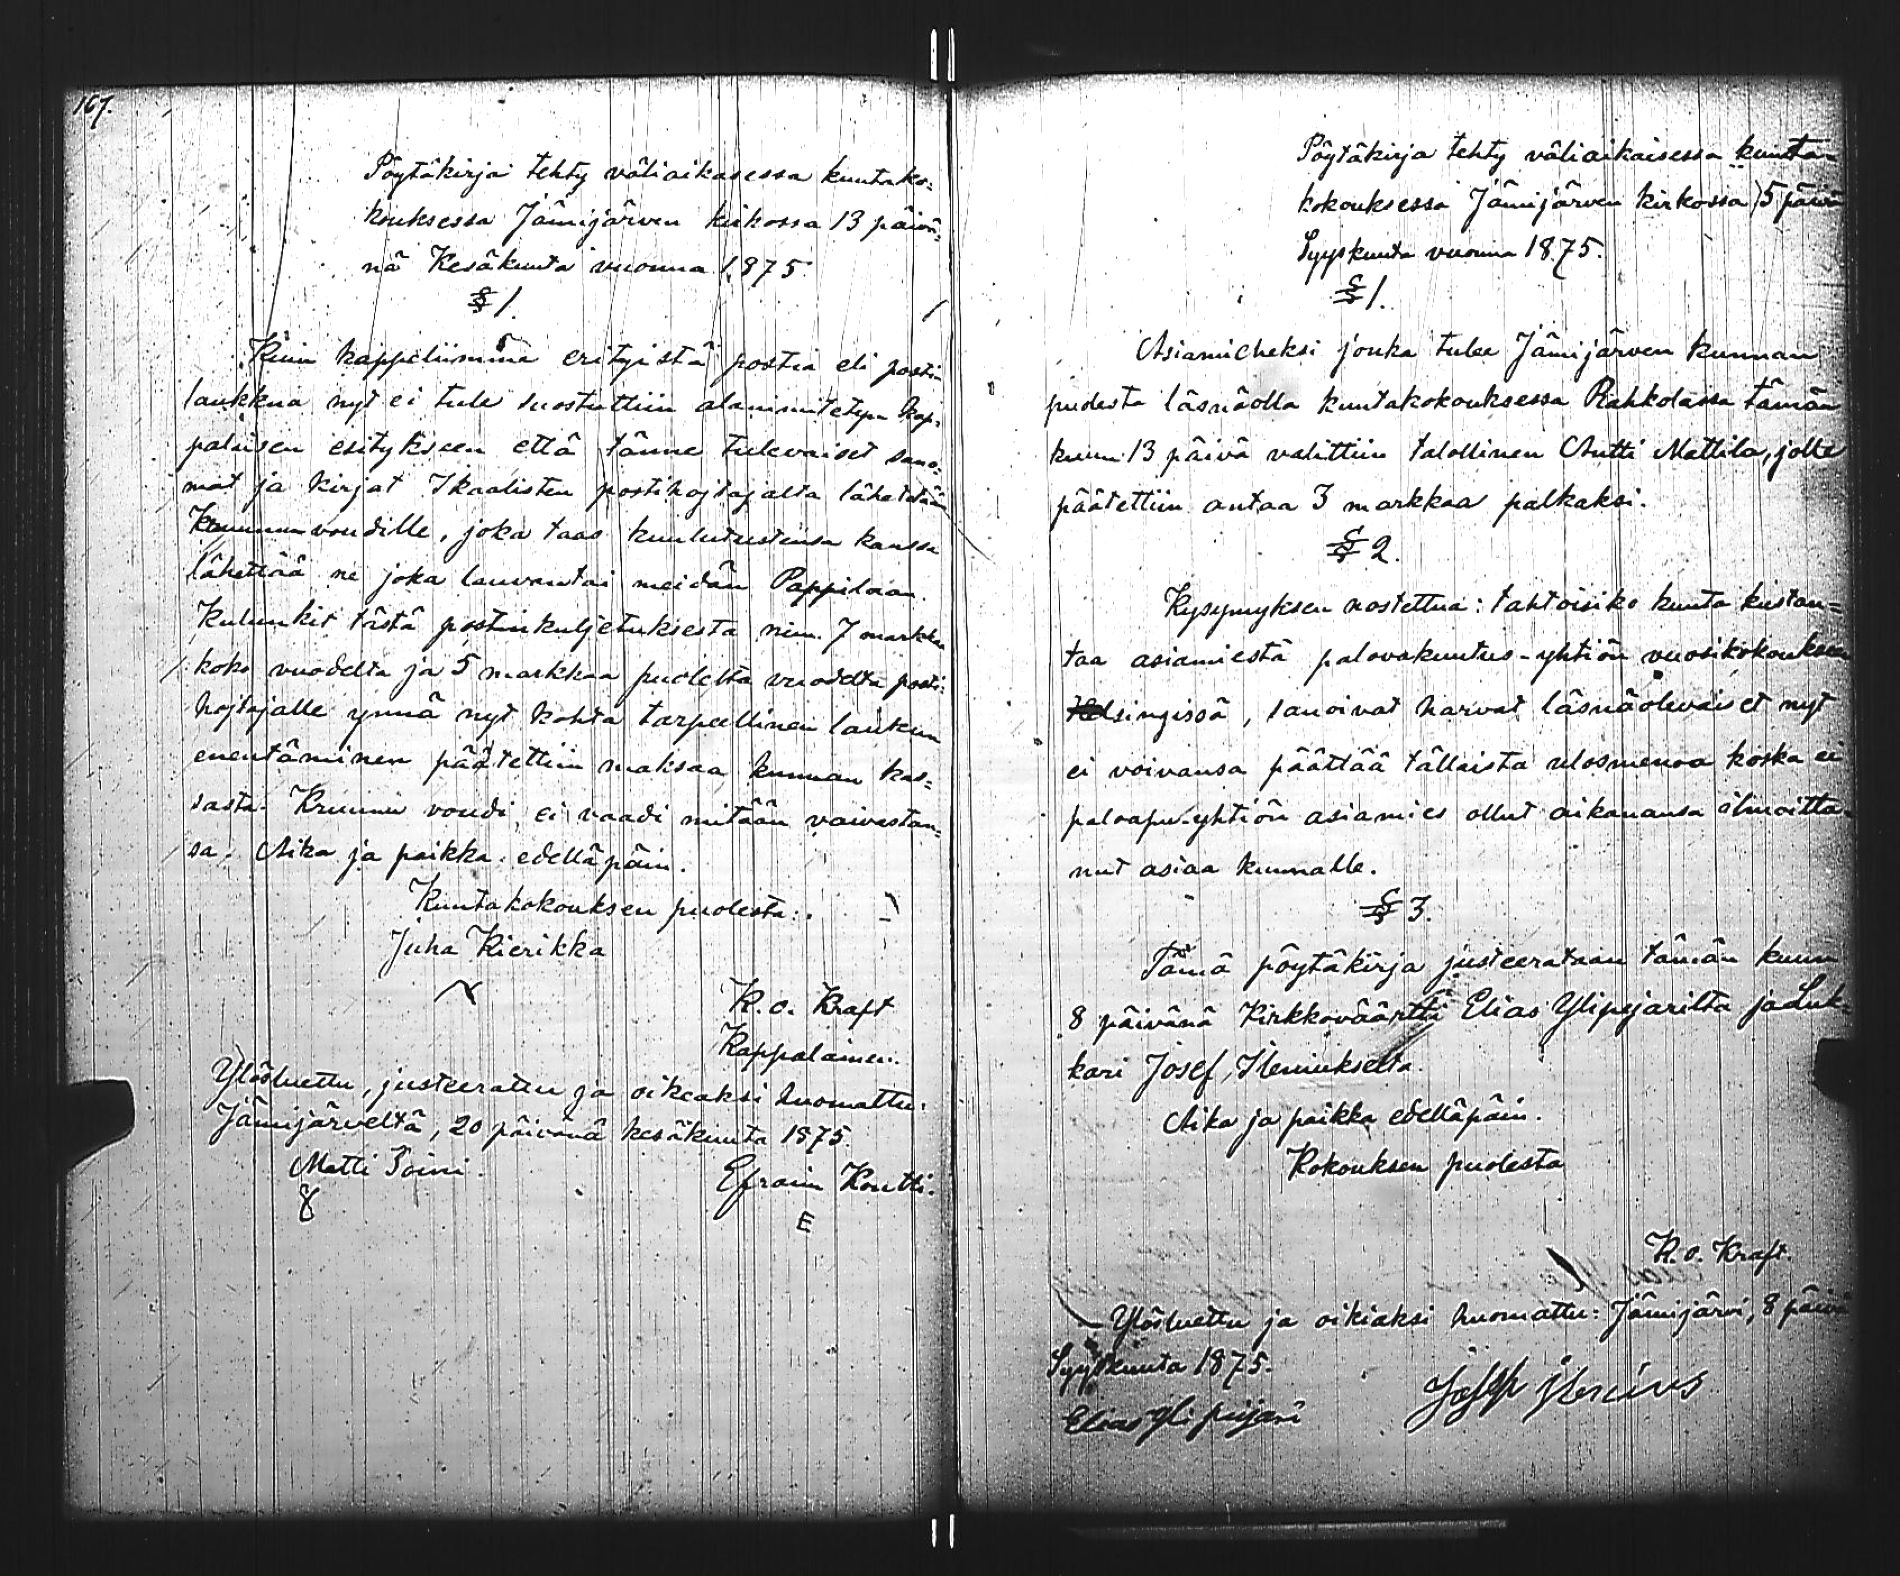 167.
Pöytäkirja tehty väliaikasessa kuntako-
kouksessa Jämijärven kirkossa 13 päivä-
nä Kesäkuuta vuonna 1875.
§ 1.
Kuin kappeliimme erityistä postia eli posti-
laukkua nyt ei tule suostuttiin alanimitetyn Kap-
palaisen esitykseen että tänne tulevaiset sano-
mat ja kirjat Ikaalisten postihojtajalta lähetetään
Kruununvoudille, joka taas kuulutustensa kanssa
lähettää ne joka lauvantai meidän Pappilaan.
Kulunkit tästä postinkuljetuksesta nim. 7 markkaa
koko vuodelta ja 5 markkaa puolelta vuodelta posti-
hojtajalle ynnä nyt kohta tarpeellinen laukun
enentäminen päätettiin maksaa kunnan kas-
sasta. Kruunu voudi ei vaadi mitään vaivastan-
sa. Aika ja paikka edelläpäin.
Kuntakokouksen puolesta:
Juha Kierikka
K. O. Kraft
Kappalainen.
Ylösluettu, justeerattu ja oikeaksi huomattu:
Jämijärveltä, 20 päivänä kesäkuuta 1875.
Matti Soini. Efraim Kontti.
E
Pöytäkirja tehty väliaikaisessa kunta-
kokouksessa Jämijärven kirkossa 5 päivä
Syyskuuta vuonna 1875.
§ 1.
Asiamieheksi jonka tulee Jämijärven kunnan
puolesta läsnäolla kuntakokouksessa Rahkolassa tämän
kuun 13 päivä valittiin talollinen Antti Mattila, jolle
päätettiin antaa 3 markkaa palkaksi.
§ 2.
Kysymyksen nostettua: tahtoisiko kunta kustan-
taa asiamiestä palovakuutus-yhtiön vuosikokouksen
Helsingissä, sanoivat harvat läsnäolevaiset nyt
ei voivansa päättää tällaista ulosmenoa koska ei
paloapu-yhtiön asiamies ollut aikanansa ilmoitta-
nut asiaa kunnalle.
§ 3.
Tämä pöytäkirja justeerataan tämän kuun
8 päivänä Kirkkoväärtti Elias Ylipejarilta ja Luk-
kari Josef Ileniukselta.
Aika ja paikka edelläpäin.
Kokouksen puolesta
K. O. Kraft.
Ylösluettu ja oikiaksi huomattu: Jämijärvi, 8 päivä
Syyskuuta 1875.
Elias yli pujari Josep ilenius